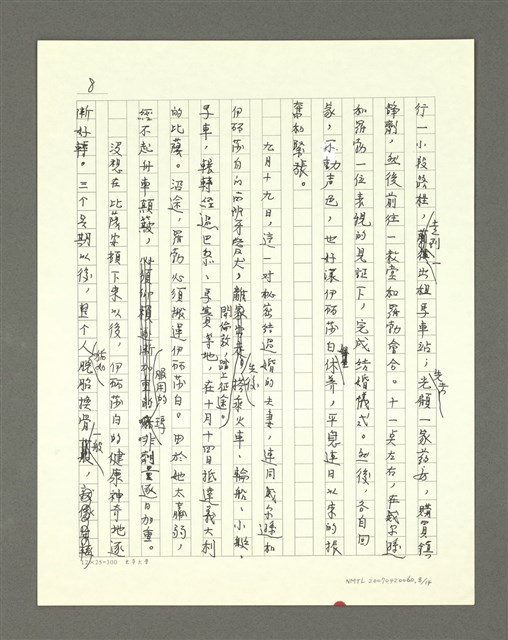 8
行一小段路程，走到出租馬車站；先去光顧一家葯房，購買鎮
静劑，然後前往一教堂和羅勃會合。十一点左右，在威尔遜
和羅勃一位表親的見証下，完成結婚儀式。然後，各自回
家，不動声色，也好讓伊丽莎白休養，平息連日以來的振
奮和緊張。
九月十九日，這一对秘密結过婚的夫妻，連同威尔遜和
伊丽莎白的愛犬，離開倫敦，踏上征途。先後搭乘火車、輪船、小艇、
馬車，輾轉經過巴黎、馬賽等地，在十月十四日抵達義大利
的比薩。沿途，羅勃必須揹運伊丽莎白。由於她太羸弱，
經不起舟車顛簸，服用的嗎啡劑量逐日加重。
沒想在比薩安頓下來以後，伊丽莎白的健康神奇地逐
漸好轉。三个星期以後，整个人脫胎換骨一般，
12×25=300
NMTL 20070420060, 8/14